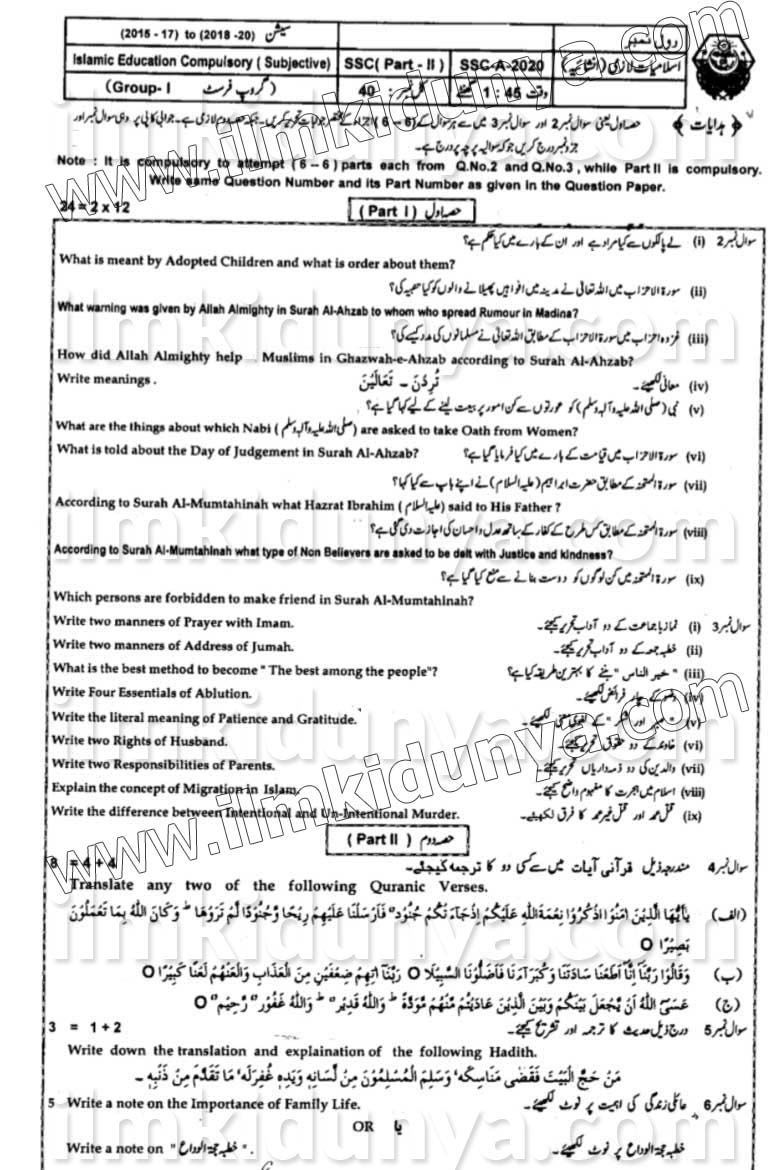 سیشن (2015 - 17) to (2018 -20)
رول نمبر
Islamic Education Compulsory ( Subjective) SSC( Part - II ) SSC-A-2020 اسلامیات لازمی (انشائیہ)
(Group- I گروپ فرسٹ) کل نمبر : 40 وقت 1 : 45 گھنٹے
﴿ ہدایات ﴾ حصہ اول یعنی سوال نمبر 2 اور سوال نمبر 3 میں سے ہر سوال کے (6 – 6) اجزاء کے مختصر جوابات تحریر کریں۔ جبکہ حصہ دوم لازمی ہے۔ جوابی کاپی پر وہی سوال نمبر اور
جزو نمبر درج کریں جو کہ سوالیہ پرچہ پر درج ہے۔
Note : It is compulsory to attempt ( 6 – 6 ) parts each from Q.No.2 and Q.No.3 , while Part II is compulsory.
Write same Question Number and its Part Number as given in the Question Paper.
24 = 2 x 12 ( Part I ) حصہ اول
سوال نمبر 2 (i) لے پالکوں سے کیا مراد ہے اور ان کے بارے میں کیا حکم ہے؟
What is meant by Adopted Children and what is order about them?
(ii) سورۃ الاحزاب میں اللہ تعالیٰ نے مدینہ میں افواہیں پھیلانے والوں کو کیا تنبیہ کی؟
What warning was given by Allah Almighty in Surah Al-Ahzab to whom who spread Rumour in Madina?
(iii) غزوہ احزاب میں سورۃ الاحزاب کے مطابق اللہ تعالیٰ نے مسلمانوں کی مدد کیسے کی؟
How did Allah Almighty help Muslims in Ghazwah-e-Ahzab according to Surah Al-Ahzab?
Write meanings . تُرِدْنَ ۔ تَعَالَيْنَ (iv) معانی لکھیئے۔
(v) نبی (صلی اللہ علیہ وآلہ وسلم) کو عورتوں سے کن امور پر بیعت لینے کے لیے کہا گیا ہے؟
What are the things about which Nabi (صلی اللہ علیہ وآلہ وسلم) are asked to take Oath from Women?
What is told about the Day of Judgement in Surah Al-Ahzab? (vi) سورۃ الاحزاب میں قیامت کے بارے میں کیا فرمایا گیا ہے؟
(vii) سورۃ الممتحنہ کے مطابق حضرت ابراہیم (علیہ السلام) نے اپنے باپ سے کیا کہا؟
According to Surah Al-Mumtahinah what Hazrat Ibrahim (علیہ السلام) said to His Father ?
(viii) سورۃ الممتحنہ کے مطابق کس طرح کے کفار کے ساتھ عدل و احسان کی اجازت دی گئی ہے؟
According to Surah Al-Mumtahinah what type of Non Believers are asked to be delt with Justice and kindness?
(ix) سورۃ الممتحنہ میں کن لوگوں کو دوست بنانے سے منع کیا گیا ہے؟
Which persons are forbidden to make friend in Surah Al-Mumtahinah?
Write two manners of Prayer with Imam. سوال نمبر 3 (i) نماز باجماعت کے دو آداب تحریر کیجئے۔
Write two manners of Address of Jumah. (ii) خطبہ جمعہ کے دو آداب تحریر کیجئے۔
What is the best method to become " The best among the people"? (iii) "خیر الناس" بننے کا بہترین طریقہ کیا ہے؟
Write Four Essentials of Ablution. (iv) وضو کے چار فرائض لکھیئے۔
Write the literal meaning of Patience and Gratitude. (v) "صبر اور شکر" کے لغوی معنی لکھیئے۔
Write two Rights of Husband. (vi) خاوند کے دو حقوق تحریر کیجئے۔
Write two Responsibilities of Parents. (vii) والدین کی دو ذمہ داریاں تحریر کیجئے۔
Explain the concept of Migration in Islam. (viii) اسلام میں ہجرت کا مفہوم واضح کیجئے۔
Write the difference between Intentional and Un-Intentional Murder. (ix) قتل عمد اور قتل غیر عمد کا فرق لکھیئے۔
( Part II ) حصہ دوم
8 = 4 + 4 سوال نمبر 4 مندرجہ ذیل قرآنی آیات میں سے کسی دو کا ترجمہ کیجئے۔
Translate any two of the following Quranic Verses.
(الف) يٰٓاَيُّهَا الَّذِيْنَ اٰمَنُوا اذْكُرُوْا نِعْمَةَ اللّٰهِ عَلَيْكُمْ اِذْ جَآءَتْكُمْ جُنُوْدٌ فَاَرْسَلْنَا عَلَيْهِمْ رِيْحًا وَّجُنُوْدًا لَّمْ تَرَوْهَا ط وَكَانَ اللّٰهُ بِمَا تَعْمَلُوْنَ
بَصِيْرًا O
(ب) وَقَالُوْا رَبَّنَآ اِنَّآ اَطَعْنَا سَادَتَنَا وَكُبَرَآءَنَا فَاَضَلُّوْنَا السَّبِيْلَا O رَبَّنَآ اٰتِهِمْ ضِعْفَيْنِ مِنَ الْعَذَابِ وَالْعَنْهُمْ لَعْنًا كَبِيْرًا O
(ج) عَسَى اللّٰهُ اَنْ يَّجْعَلَ بَيْنَكُمْ وَبَيْنَ الَّذِيْنَ عَادَيْتُمْ مِّنْهُمْ مَّوَدَّةً ط وَاللّٰهُ قَدِيْرٌ ط وَاللّٰهُ غَفُوْرٌ رَّحِيْمٌ O
3 = 1 + 2 سوال نمبر 5 درج ذیل حدیث کا ترجمہ اور تشریح کیجئے۔
Write down the translation and explaination of the following Hadith.
مَنْ حَجَّ الْبَيْتَ فَقَضٰى مَنَاسِكَهٗ وَسَلِمَ الْمُسْلِمُوْنَ مِنْ لِّسَانِهٖ وَيَدِهٖ غُفِرَلَهٗ مَا تَقَدَّمَ مِنْ ذَنْبِهٖ ۔
5 Write a note on the Importance of Family Life. سوال نمبر 6 عائلی زندگی کی اہمیت پر نوٹ لکھیئے۔
OR یا
Write a note on "خطبہ حجۃ الوداع". خطبہ حجۃ الوداع پر نوٹ لکھیئے۔
www.ilmkidunya.com
www.ilmkidunya.com
ilmkidunya.com
ilmkidunya.com
ilmkidunya.com
ilmkidunya.com
ilmkidunya.com